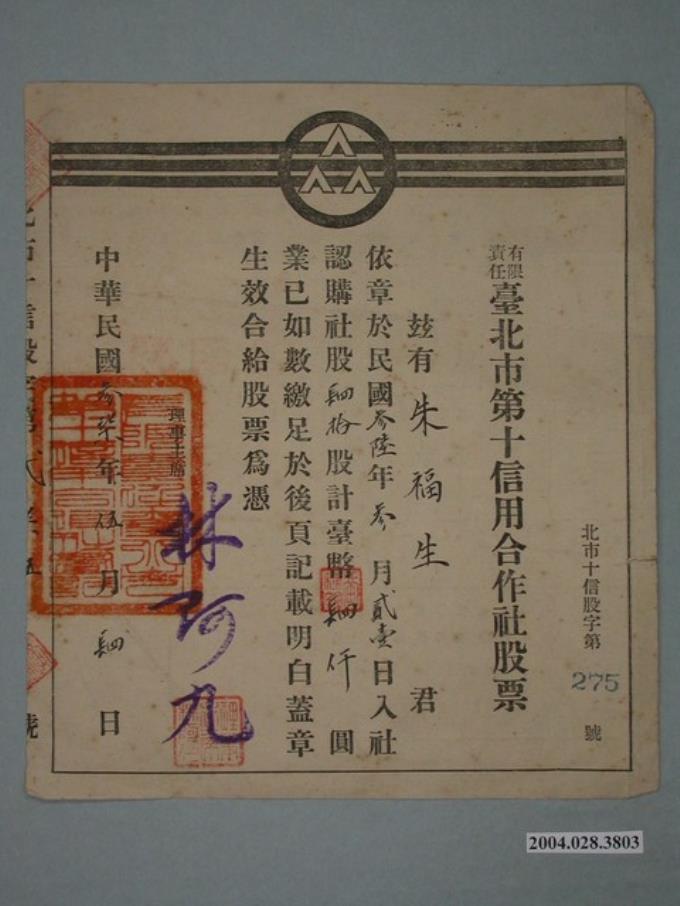 北市十信股字第 275 號
有限責任臺北市第十信用合作社股票
茲有朱福生君
依章於民國叁陸年叁月貳壹日入社
認購社股肆拾股計臺幣肆仟圓
業已如數繳足於後頁記載明白蓋章
生效合給股票為憑
理事主席 林阿九
中華民國叁柒年伍月肆日
2004.028.3803